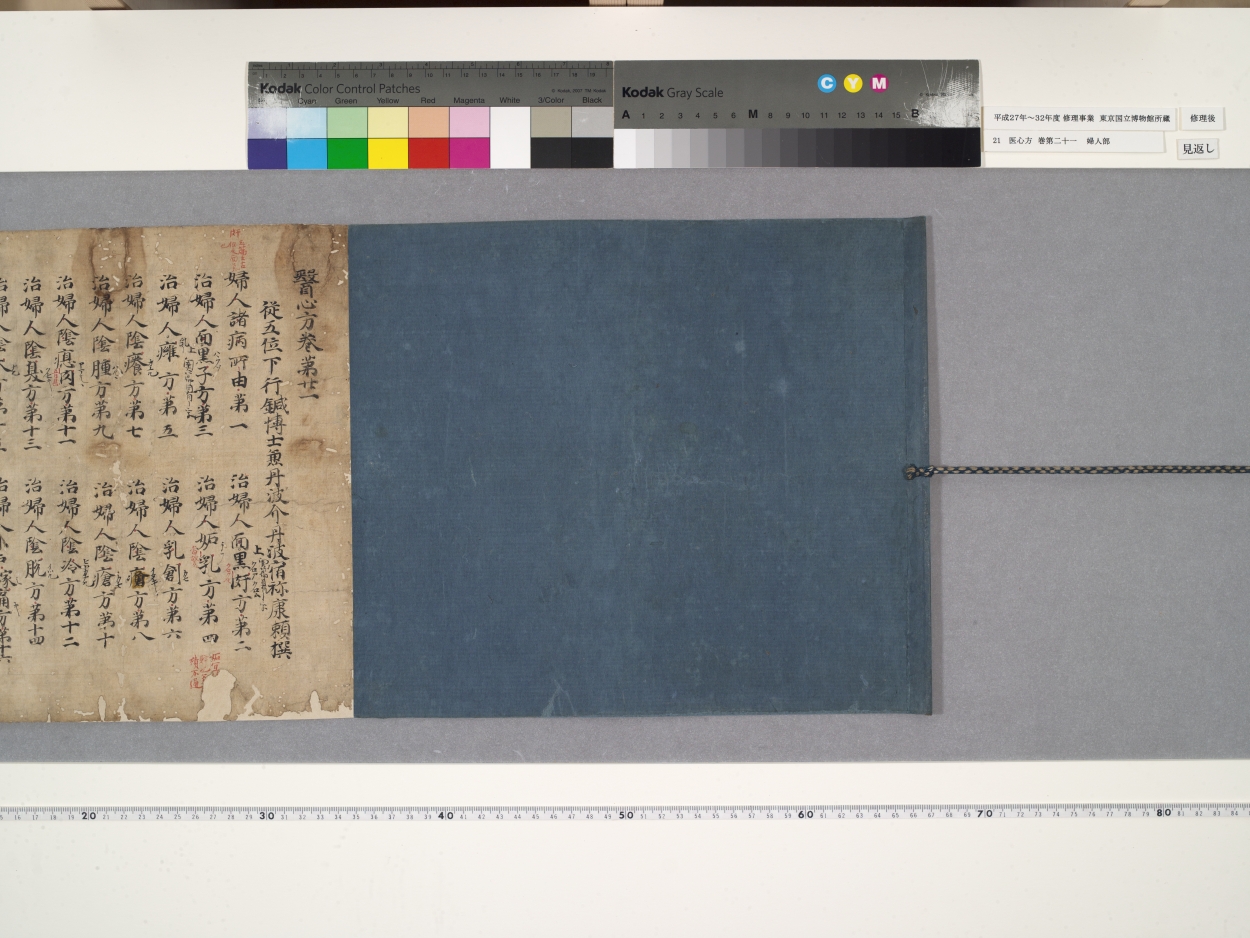 Kodak Color Control Patches
Cyan Green Yellow Red Magenta White 3/Color Black
Kodak Gray Scale
C Y M
A 1 2 3 4 5 6 M 8 9 10 11 12 13 14 15 B
平成27年～32年度 修理事業 東京国立博物館所蔵
修理後
21 医心方 巻第二十一 婦人部
見返し
醫心方巻第廿一
從五位下行鍼博士兼丹波介丹波宿祢康頼撰
婦人諸病所由第一
治婦人面黒皯方第二
治婦人面黒子方第三
治婦人妬乳方第四
治婦人癰方第五
治婦人乳創方第六
治婦人陰癢方第七
治婦人陰瘡方第八
治婦人陰腫方第九
治婦人陰瘡方第十
治婦人陰瘜肉方第十一
治婦人陰冷方第十二
治婦人陰臭方第十三
治婦人陰脱方第十四
20 30 40 50 60 70 80